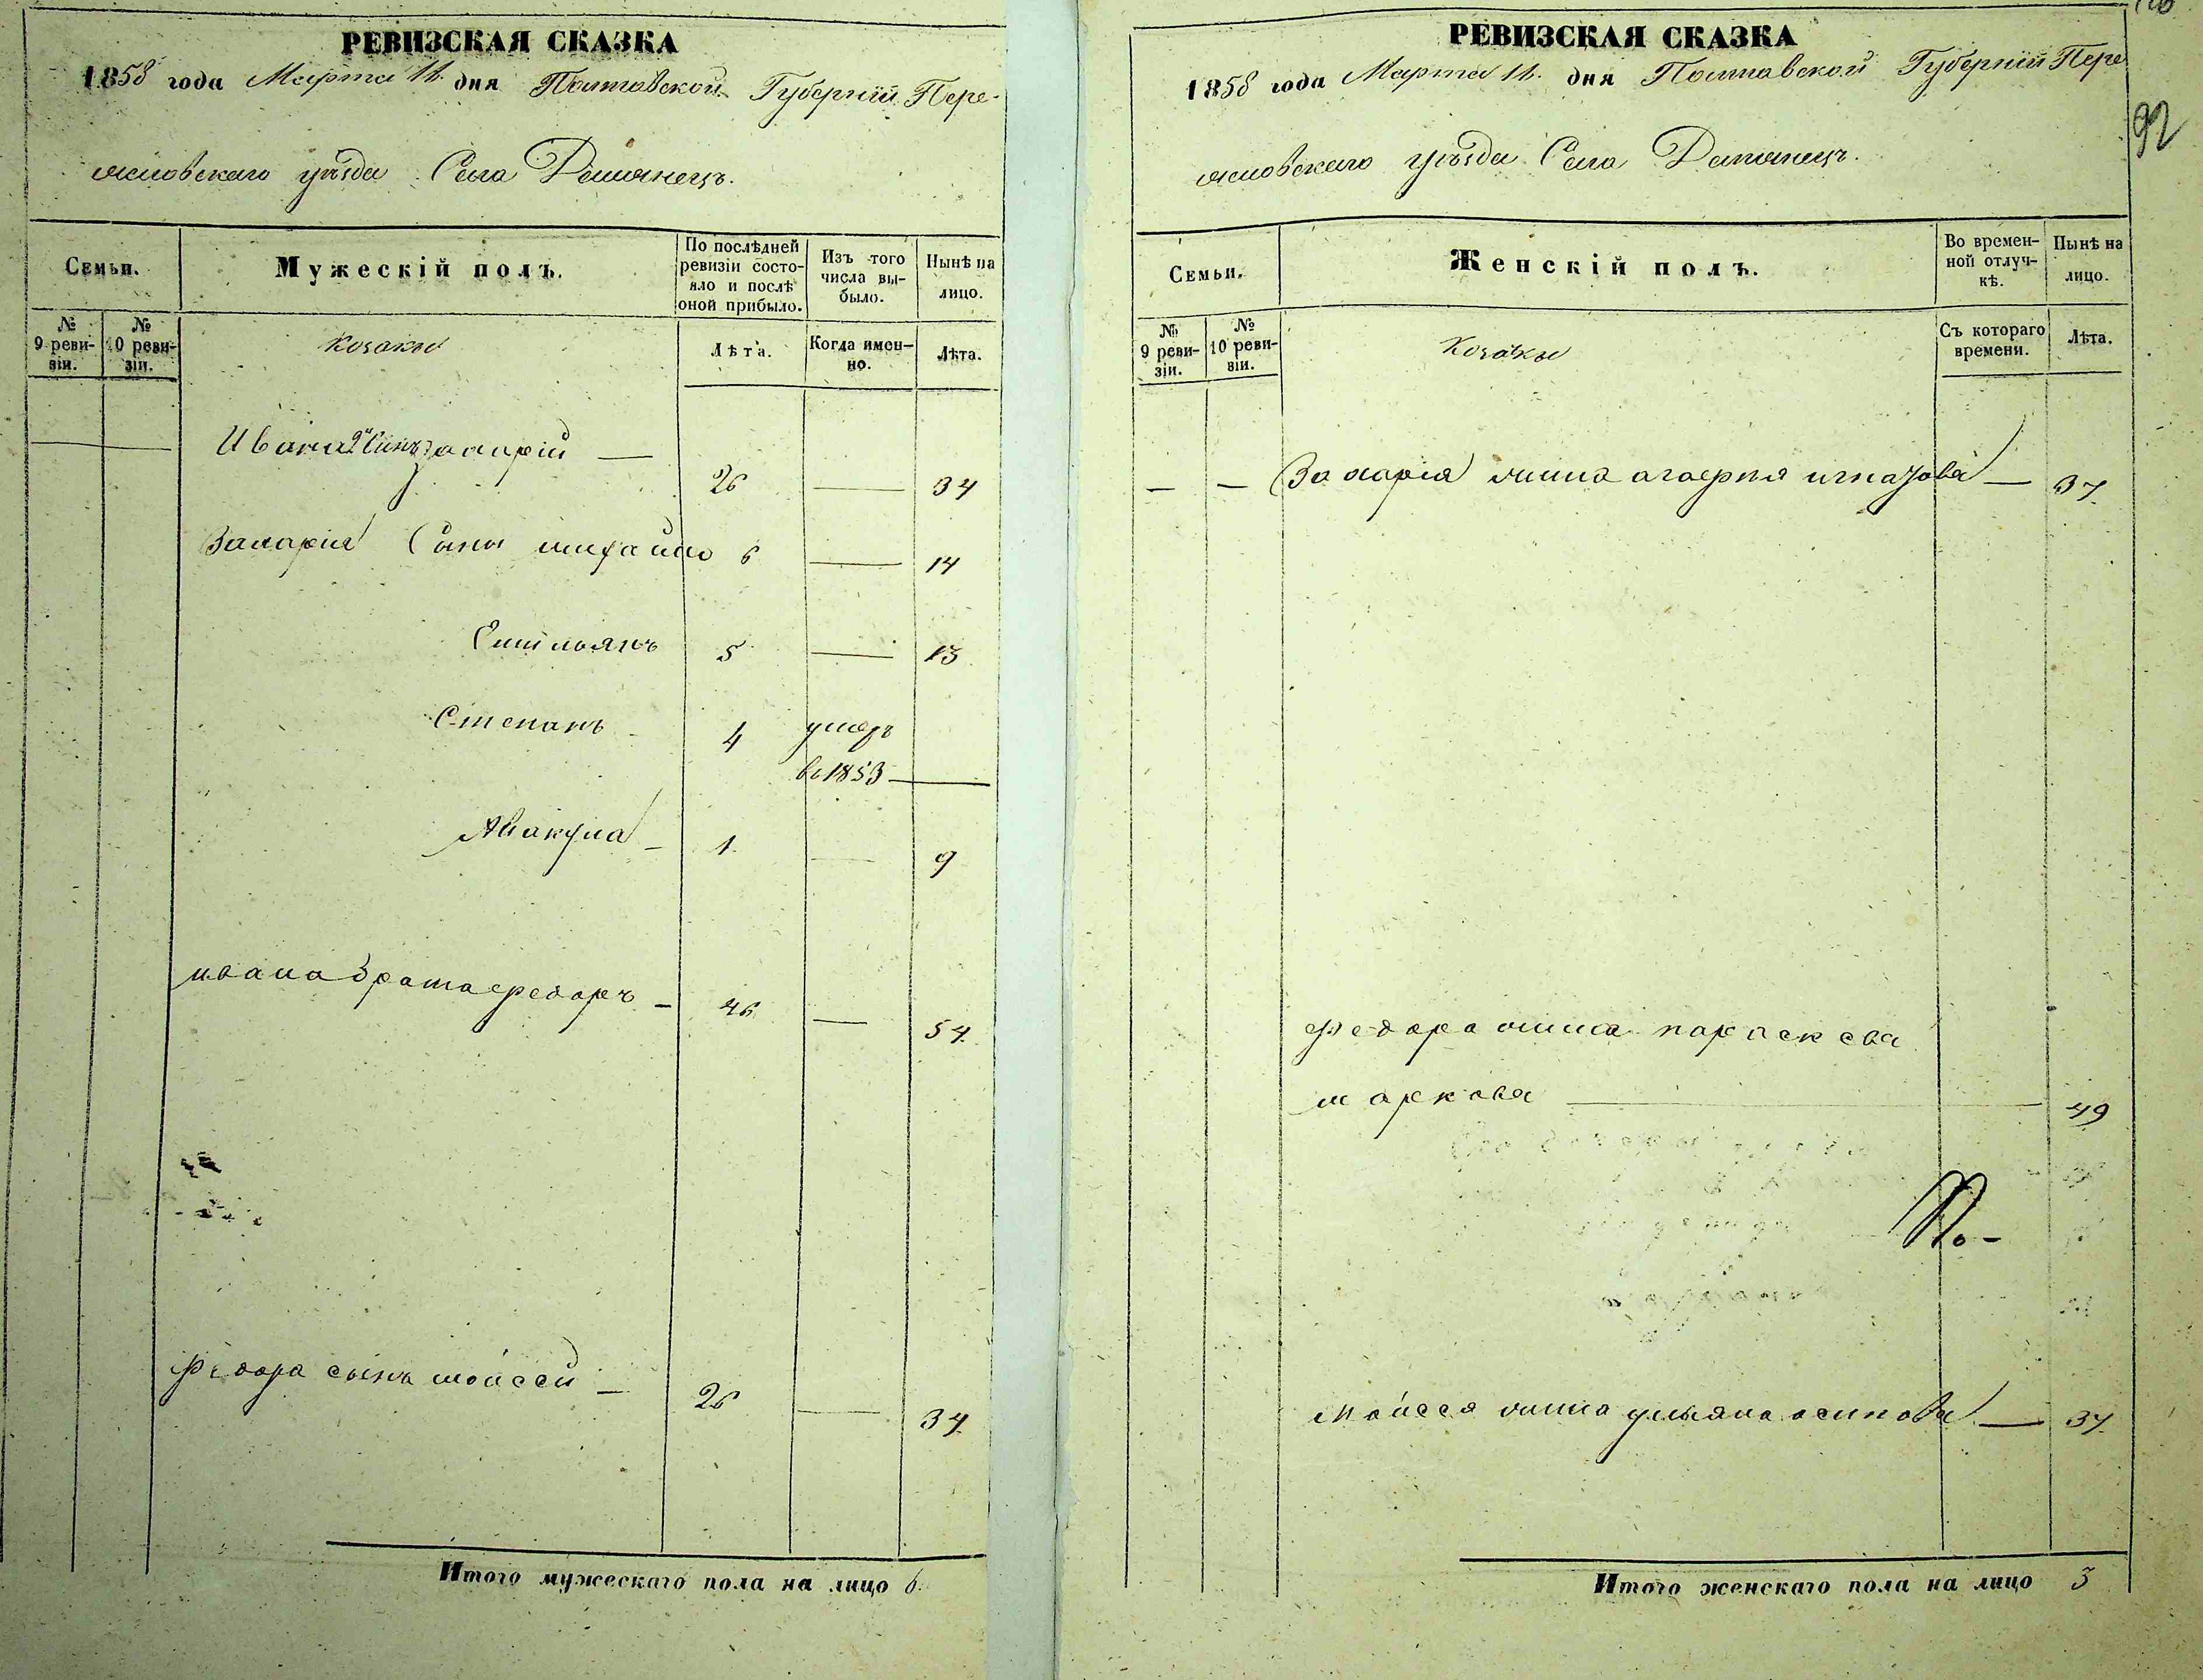 РЕВИЗСКАЯ СКАЗКА
1858 года Марта 11. дня Полтавской Губерніи Пере-
яславскаго уѣзда Села Демянецъ.
Семьи.
Мужескій полъ.
По послѣдней ревизіи состояло и послѣ оной прибыло.
Изъ того числа выбыло.
Нынѣ на лицо.
№ 9 ревизіи.
№ 10 ревизіи.
Козаки
Лѣта.
Когда именно.
Лѣта.
Ивана 2й Сынъ Захарій — 26 — 34
Захарія Сыны Михайло 6 — 14
Емильянъ 5 — 13
Степанъ 4 умеръ
въ 1853 —
Авакума — 1 — 9
ивана брата Федоръ — 46 — 54.
Федора сынъ Мойсей — 26 — 34.
Итого мужескаго пола на лицо 6.
РЕВИЗСКАЯ СКАЗКА
1858 года Марта 11. дня Полтавской Губерніи Пере
яславскаго уѣзда Села Демянецъ.
92
Семьи.
Женскій полъ.
Во временной отлучкѣ.
Нынѣ на лицо.
№ 9 ревизіи.
№ 10 ревизіи.
Козаки
Съ котораго времени.
Лѣта.
— — Захарія жина Игнатова — 37.
Федора жина параскева
маркова — 49
По-
Мойсея жина ульяна осипова — 37.
Итого женскаго пола на лицо 3